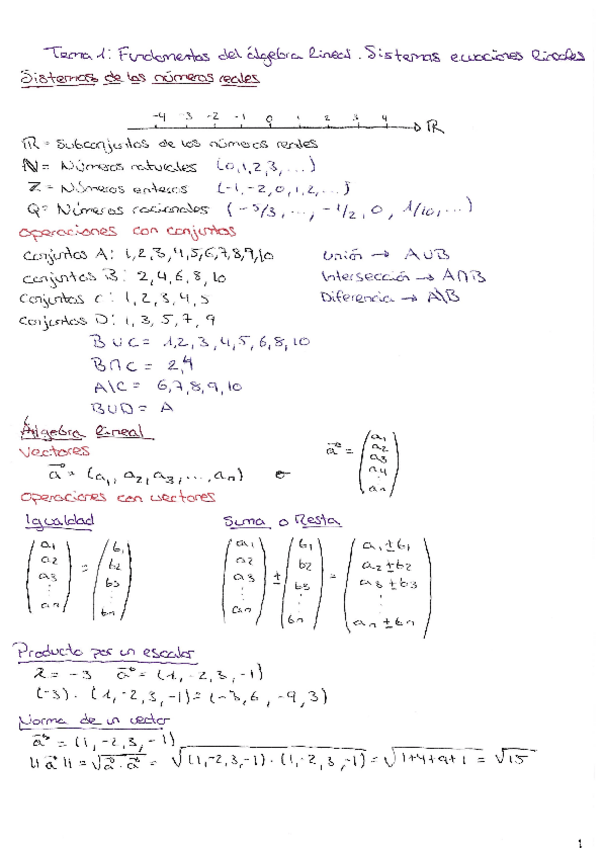 Tema 1: Fundamentos del álgebra lineal. Sistemas ecuaciones lineales
Sistemas de los números reales
-4 -3 -2 -1 0 1 2 3 4 ℝ
ℝ = Subconjuntos de los números reales
ℕ = Números naturales (0,1,2,3,...)
Z = Números enteros (-1,-2,0,1,2,...)
Q = Números racionales (-5/3, ..., -1/2, 0, 1/10, ...)
Operaciones con conjuntos
Conjuntos A: 1,2,3,4,5,6,7,8,9,10 Unión → A∪B
Conjuntos B: 2,4,6,8,10 Intersección → A∩B
Conjuntos C: 1,2,3,4,5 Diferencia → A\B
Conjuntos D: 1,3,5,7,9
B∪C = 1,2,3,4,5,6,8,10
B∩C = 2,4
A\C = 6,7,8,9,10
B∪D = A
Álgebra lineal
Vectores
a⃗ = (a1, a2, a3, ..., an) o a⃗ = (a1 a2 a3 a4 ⋮ an)
Operaciones con vectores
Igualdad Suma o Resta
(a1 a2 a3 ⋮ an) = (b1 b2 b3 ⋮ bn) (a1 a2 a3 ⋮ an) ± (b1 b2 b3 ⋮ bn) = (a1±b1 a2±b2 a3±b3 ⋮ an±bn)
Producto por un escalar
λ = -3 a⃗ = (1,-2,3,-1)
(-3)·(1,-2,3,-1) = (-3,6,-9,3)
Norma de un vector
a⃗ = (1,-2,3,-1)
||a⃗|| = √a⃗·a⃗ = √(1,-2,3,-1)·(1,-2,3,-1) = √1+4+9+1 = √15
1